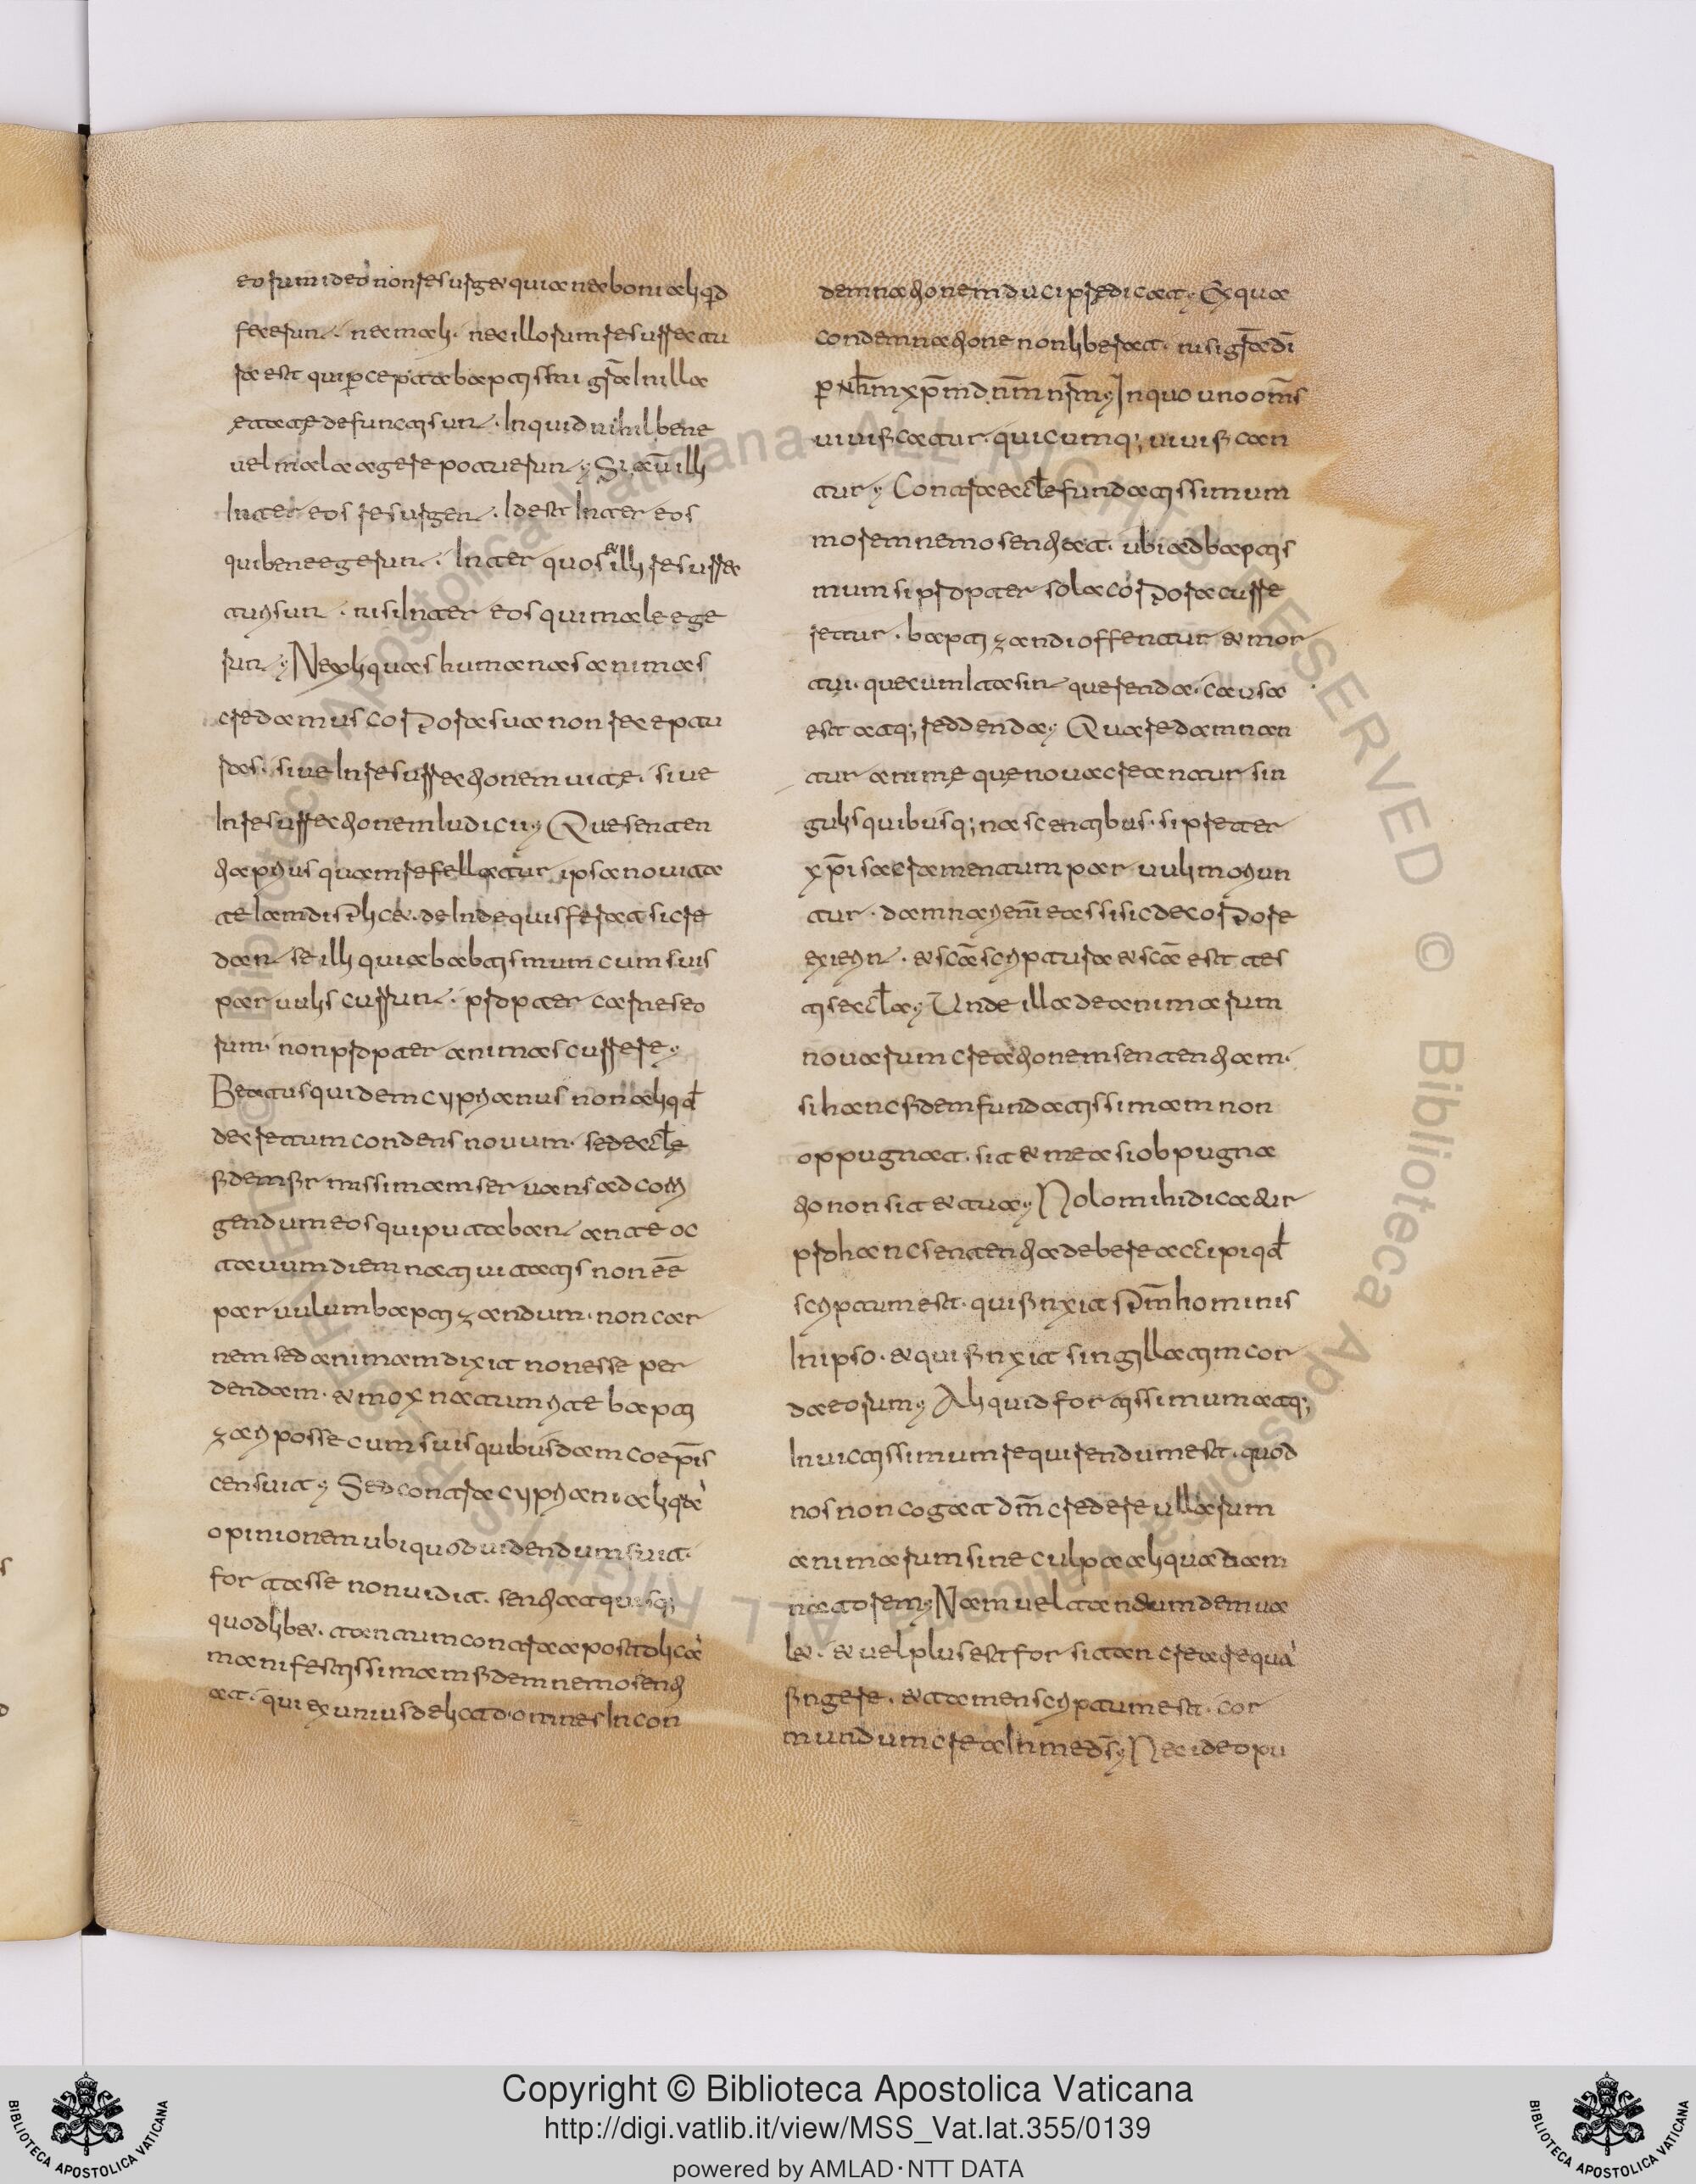 eorum ideo non resurget quia nec boni aliqd
fecerunt. nec mali. nec illorum resurrectu
ra est qui p̄cepta baptismi gr̄a In illa
ętate defuncti sunt. In quid nihil bene
vel mala agere potuerunt; Si aut̄ illi
Inter eos resurgent. Idest Inter eos
qui bene egerunt. Inter quos et illi resurrec
turi sunt. nisi Inter eos qui male ege
runt; Ne aliquas humanas animas
credamus corpora sua non receptu
ras. sive In resurrectionem vitę. sive
In resurrectionem Iudicii; Que senten
tia prius quam refellatur ipsa novita
te iam displicet. deInde quis ferat si cre
dant se illi qui ab babtismum cum suis
parvulis currunt. propter carnes eo
rum. non propter animas currere;
Beatus quidem cyprianus non aliqđ
decretum condens novum. sed eccl̄ę
fidem firmissimam servans ad corri
gendum eos qui putabant ante oc
tavum diem nativitatis non eē
parvulum baptizandum. non car
nem sed animam dixit non esse per
dendam. et mox natum rite bapti
zari posse cum suis quibusdam coep̄is
censuit; Sed contra cypriani aliquā
opinionem ubi quod videndum fuit.
fortasse non vidit. sentiat quisq;
quodlibet. tantum contra apostolicā
manifestissimam fidem nemo senti
at. qui ex unius delicto omnes In con
demnationem duci prędicat; Ex qua
condemnatione non liberat. nisi gr̄a dī
p ih̄m xp̄m dnm̄ nr̄m; In quo uno om̄s
vivificatur. quicumq; vivifican
tur; Contra eccl̄ę fundatissimum
morem nemo sentiat. ubi ad baptis
mum si propter sola corpora curre
retur. baptizandi offerrentur et mor
tui. que cum Ita sint querenda. causa
est atq; reddenda; Quare damnan
tur animę quę nova creantur sin
gulis quibusq; nascentibus. si preter
xp̄i sacramentum parvuli moriun
tur. damnari eni eas si sic de corpore
exierint. et scā scriptura et scā est tes
tis eccl̄a; Unde illa de animarum
novarum creationem sententiam.
si hanc fidem fundatissimam non
oppugnat. sit et mea si obpugna
tio non sit et tua; Nolo mihi dicatur
pro hanc sententia debere accipi qđ
scriptum est. qui finxit spm̄ hominis
In ipso. et qui finxit singillatim cor
da eorum; Aliquid fortissimum atq;
Invictissimum requirendum est. quod
nos non cogat dm̄ credere ullarum
animarum sine culpa aliqua dam
natorem; Nam vel tantumdem va
let. et vel plus est forsitan creare quā
fingere. et tamen scriptum est. cor
mundum crea In me ds̄; Nec ideo pu